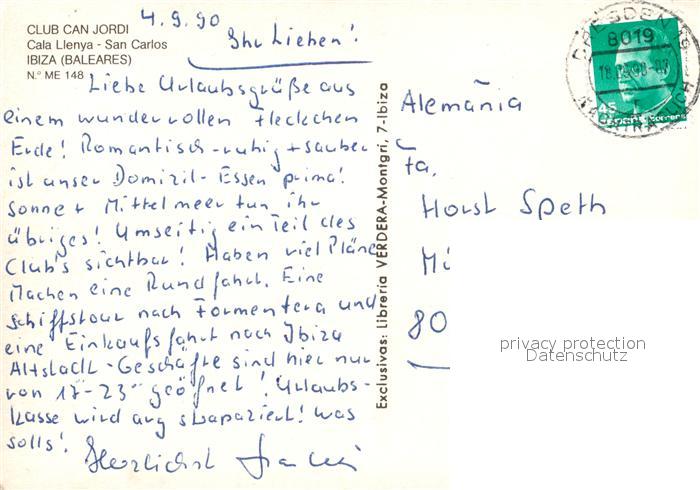 CLUB CAN JORDI
Cala Llenya - San Carlos
IBIZA (BALEARES)
N.º ME 148
4.9.90
Ihr Lieben!
Liebe Urlaubsgrüße aus
einem wundervollen Fleckchen
Erde! Romantisch-ruhig + sauber
ist unser Domizil - Essen prima!
Sonne + Mittelmeer tun ihr
übriges! Umseitig ein Teil des
Club's sichtbar! Haben viel Pläne
Machen eine Rundfahrt. Eine
Schiffstour nach Formentera und
eine Einkaufsfahrt nach Ibiza
Altstadt - Geschäfte sind hier nur
von 17-23°° geöffnet! Urlaubs-
kasse wird arg strapaziert! Was
solls!
Herzlichst
Exclusivas: Librería VERDERA-Montgrí, 7-Ibiza
DRESDEN 19
8019
45
Correos
Alemania
Horst Speth
Mi
80
privacy protection
Datenschutz